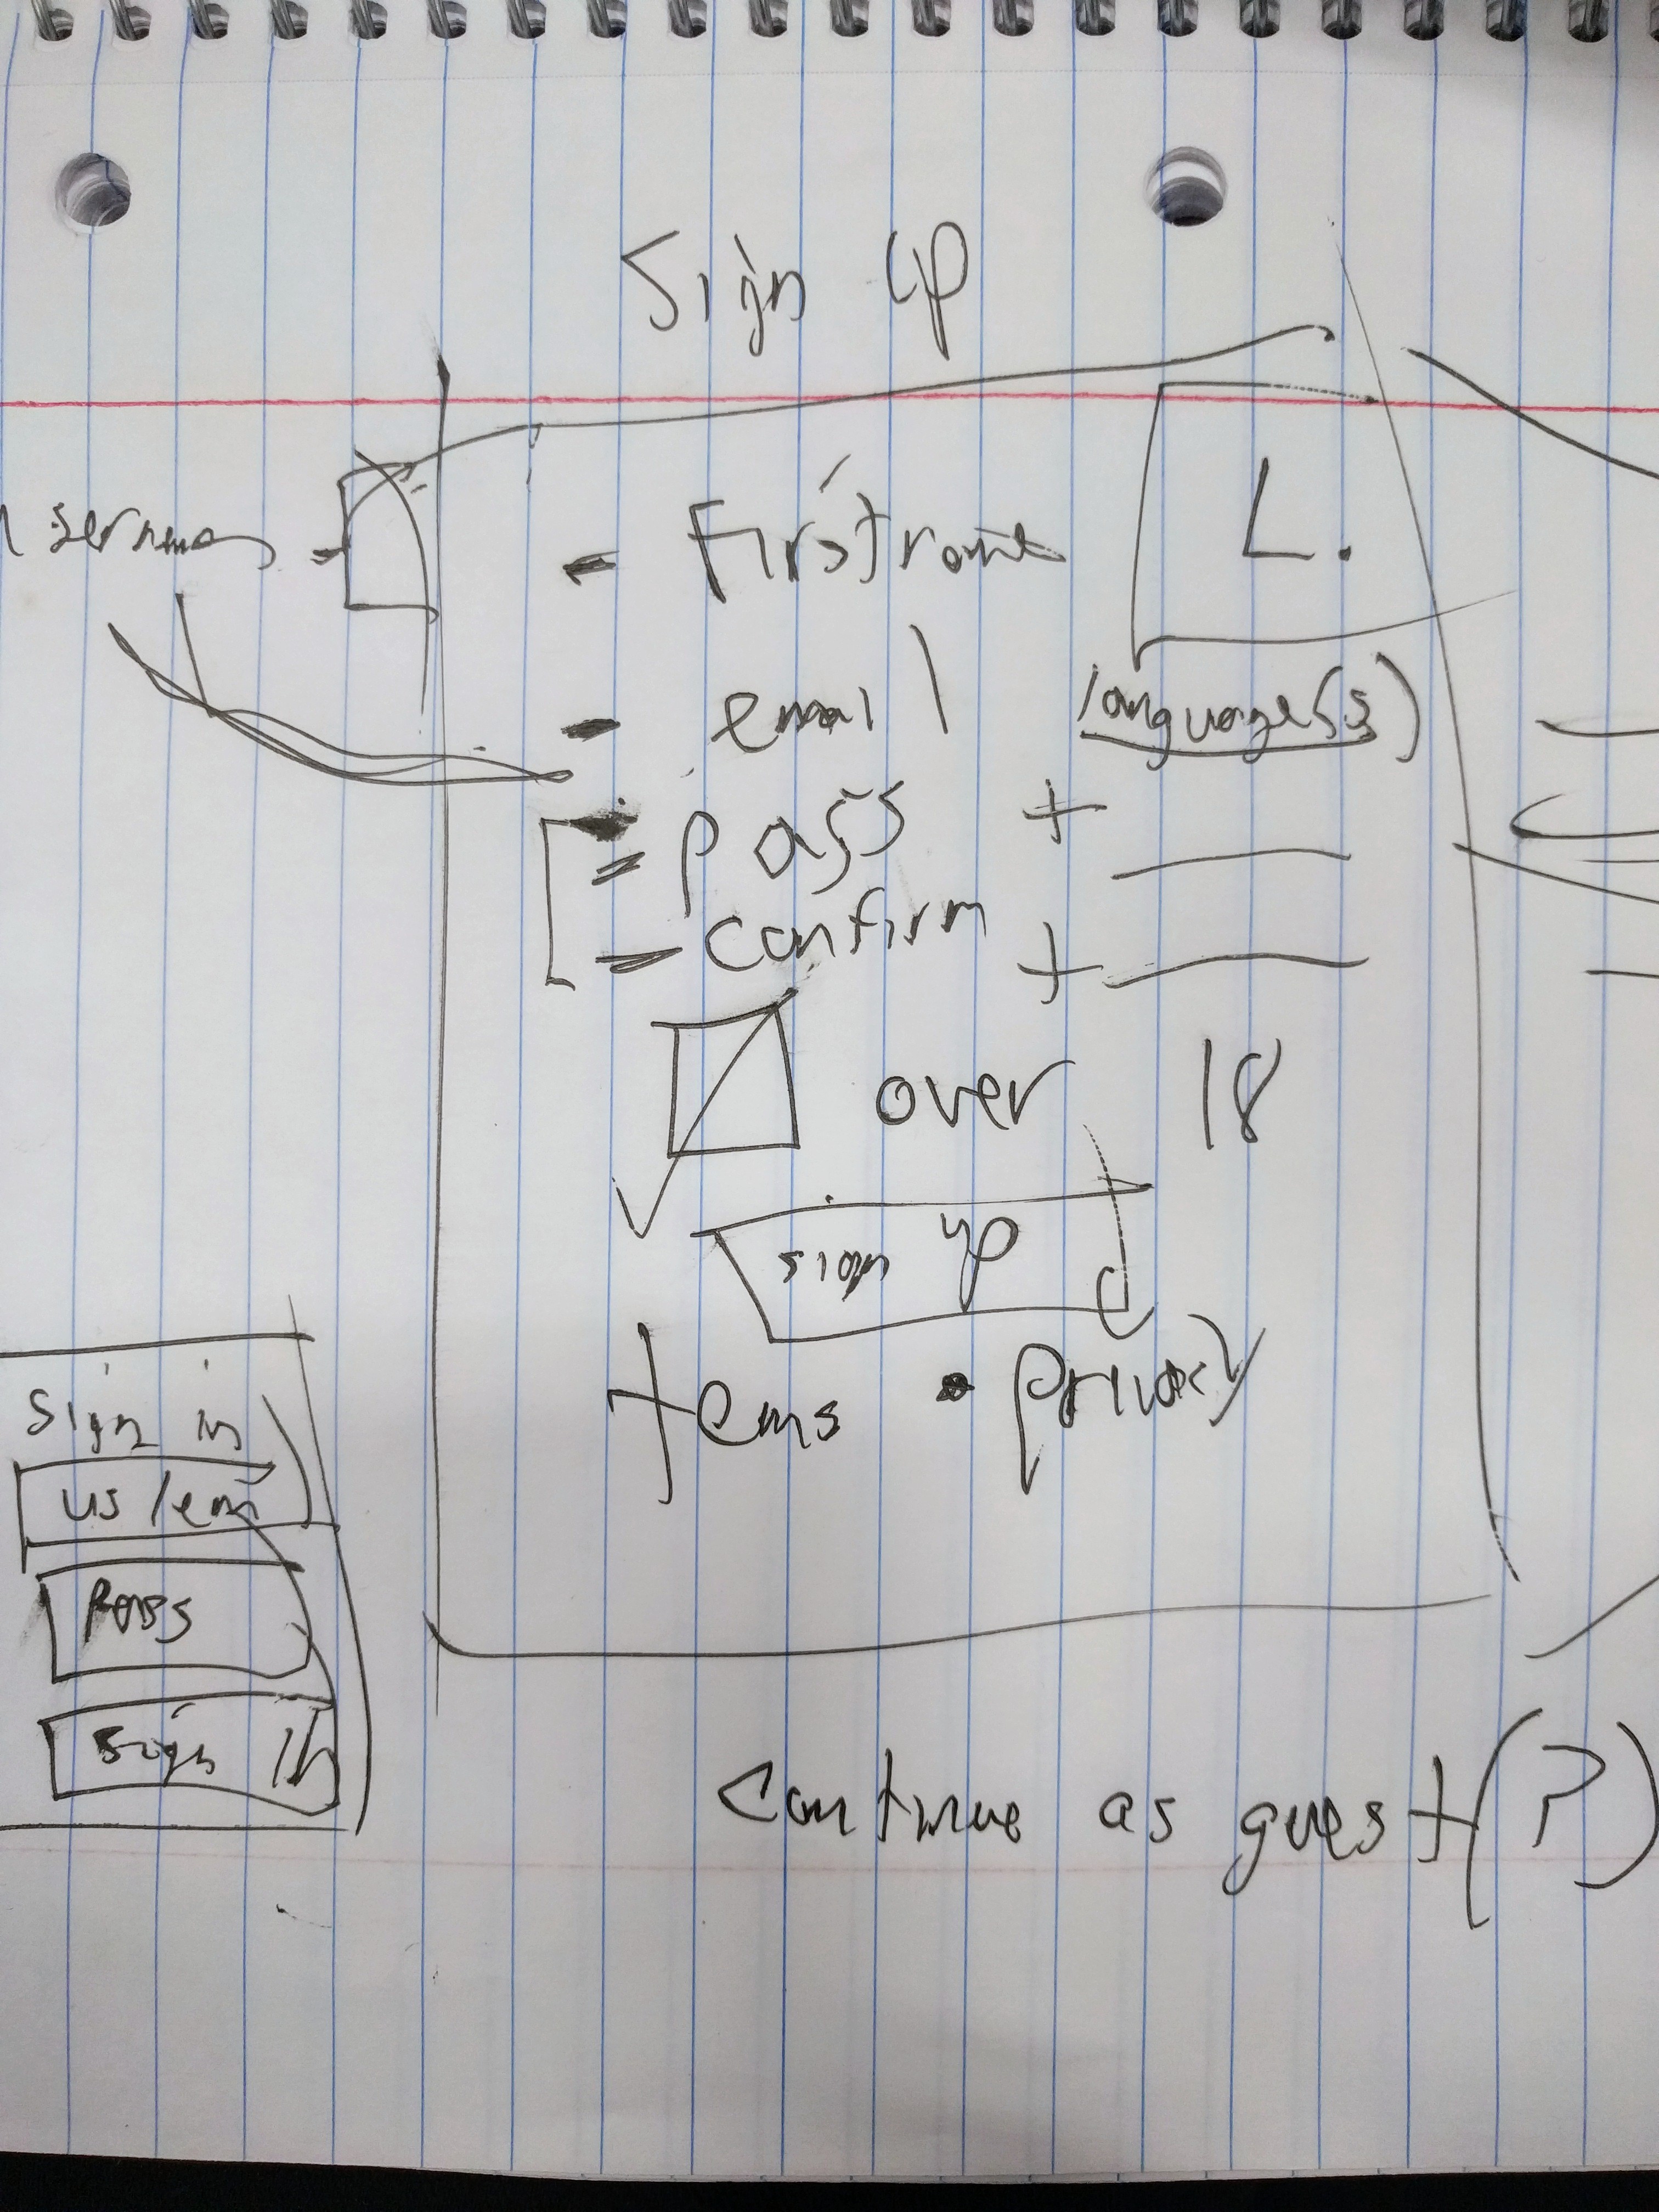 Sign up
- Firstname
L.
- email
language(s)
- pass +
- confirm +
over 18
sign up
tems • privacy
Sign in
us/em
Pass
Sign In
Continue as guest (?)